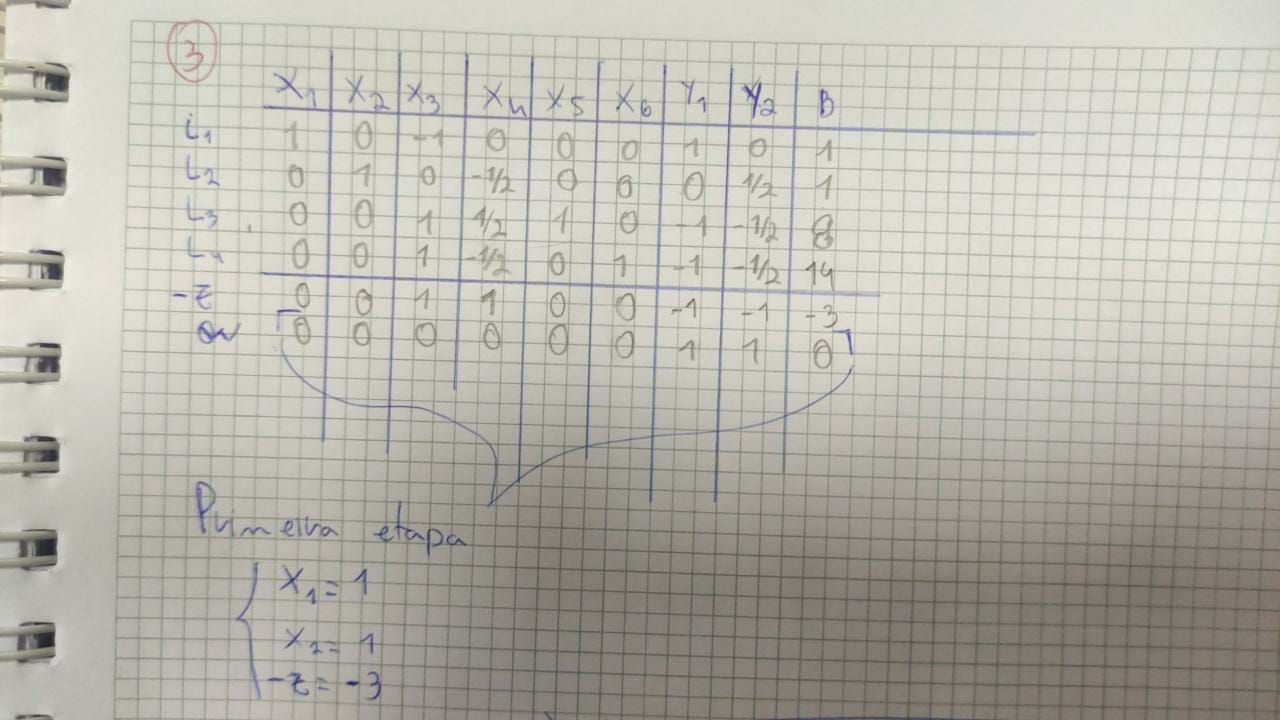 3
X1 X2 X3 X4 X5 X6 Y1 Y2 B
L1 1 0 -1 0 0 0 1 0 1
L2 0 1 0 -1/2 0 0 0 1/2 1
L3 0 0 1 1/2 1 0 -1 -1/2 8
L4 0 0 1 -1/2 0 1 -1 -1/2 14
-Z 0 0 1 1 0 0 -1 -1 -3
0 0 0 0 0 0 1 1 0
Primeira etapa
X1 = 1
X2 = 1
-Z = -3